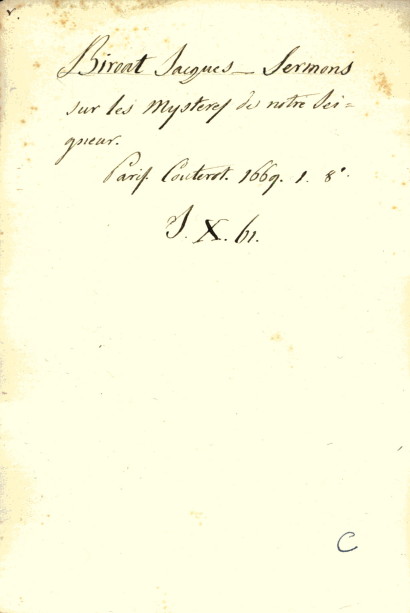 v.
Biroat Jacques — Sermons
sur les Mysteres de notre Sei=
gneur.
Paris. Couterot. 1669. 1. 8°.
S. X. 61.
C